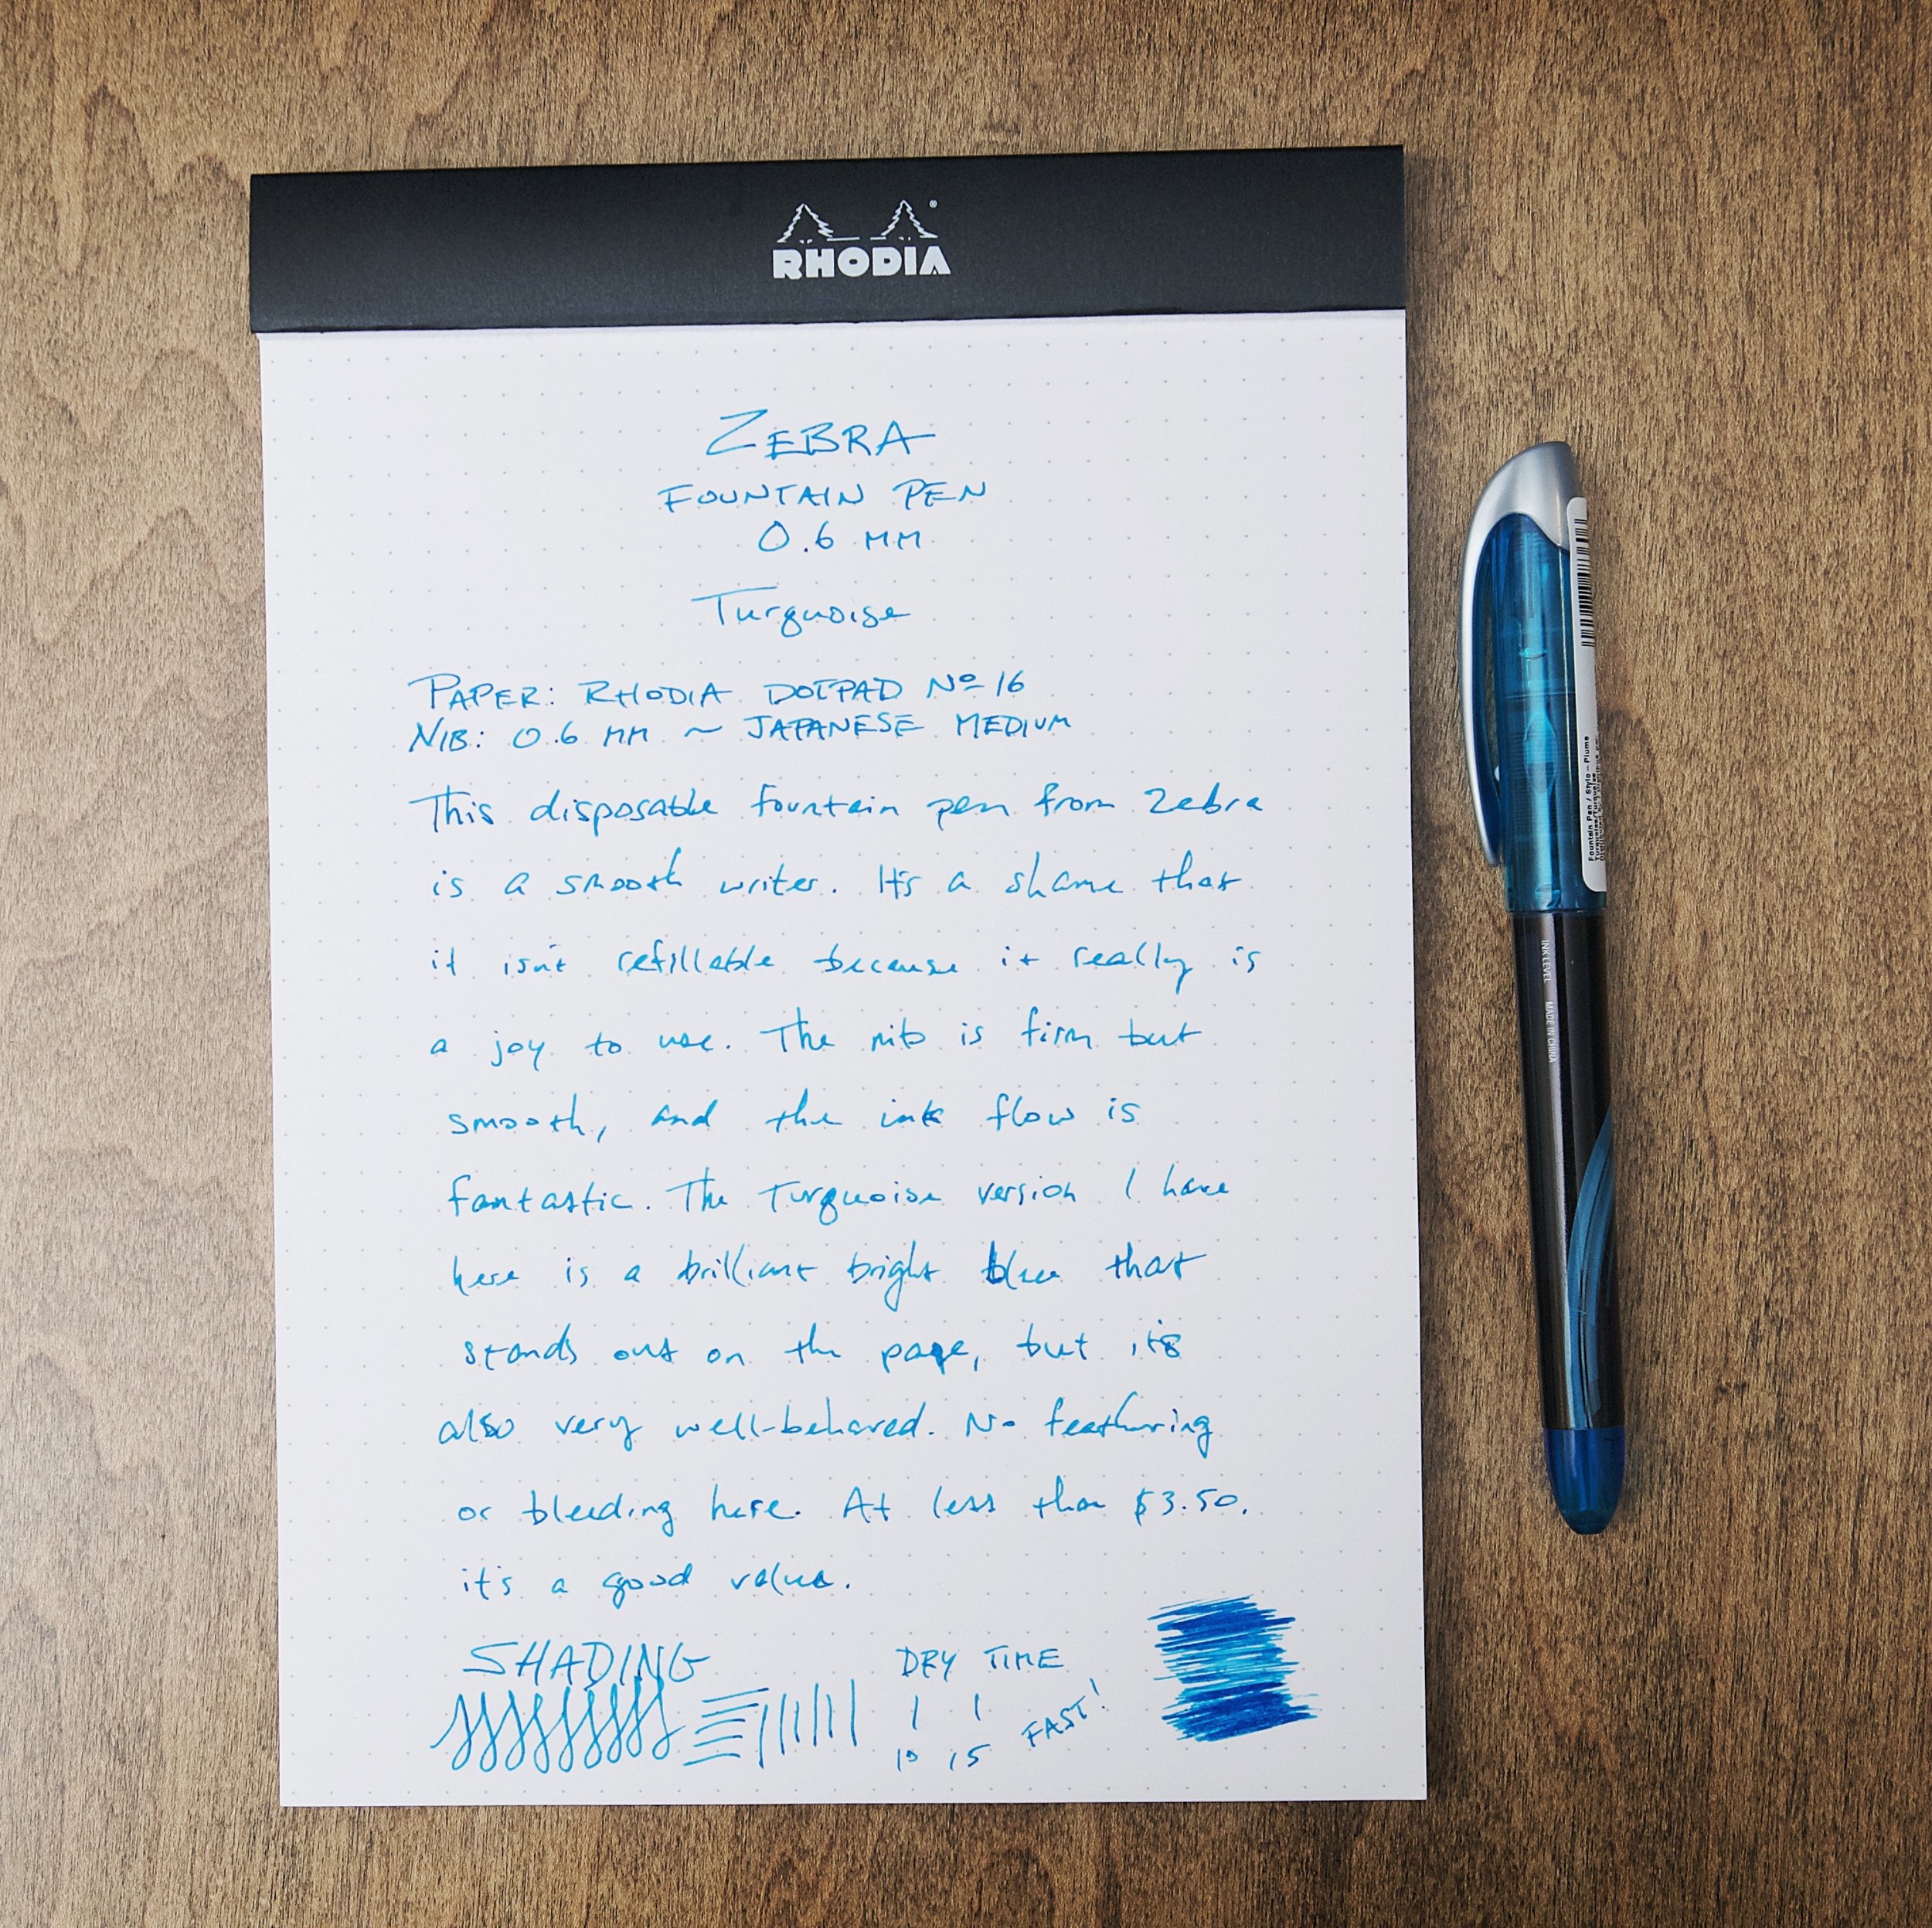 RHODIA
ZEBRA
FOUNTAIN PEN
0.6 MM
Turquoise
PAPER: RHODIA DOTPAD Nº 16
NIB: 0.6 MM ~ JAPANESE MEDIUM
This disposable fountain pen from Zebra
is a smooth writer. It's a shame that
it isn't refillable because it really is
a joy to use. The nib is firm but
smooth, and the ink flow is
fantastic. The Turquoise version I have
here is a brilliant bright blue that
stands out on the page, but it's
also very well-behaved. No feathering
or bleeding here. At less than $3.50,
it's a good value.
SHADING
DRY TIME
10 15 FAST!
Fountain Pen / Stylo - Plume
INK LEVEL MADE IN CHINA